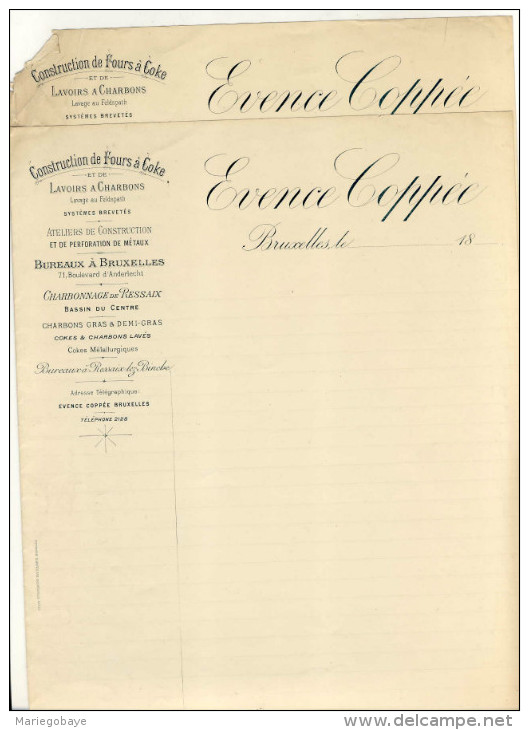 Construction de Fours à Coke
ET DE
LAVOIRS A CHARBONS
Lavage au Feldspath
SYSTÈMES BREVETÉS
Evence Coppée
Construction de Fours à Coke
ET DE
LAVOIRS A CHARBONS
Lavage au Feldspath
SYSTÈMES BREVETÉS
ATELIERS DE CONSTRUCTION
ET DE PERFORATION DE MÉTAUX
BUREAUX À BRUXELLES
71, Boulevard d'Anderlecht
CHARBONNAGE DE RESSAIX
BASSIN DU CENTRE
CHARBONS GRAS & DEMI-GRAS
COKES & CHARBONS LAVÉS
Cokes Métallurgiques
Bureaux à Ressaix lez Binche
Adresse Télégraphique
EVENCE COPPÉE BRUXELLES
TÉLÉPHONE 2188
Evence Coppée
Bruxelles, le 18
Mariegobaye
delcampe.net